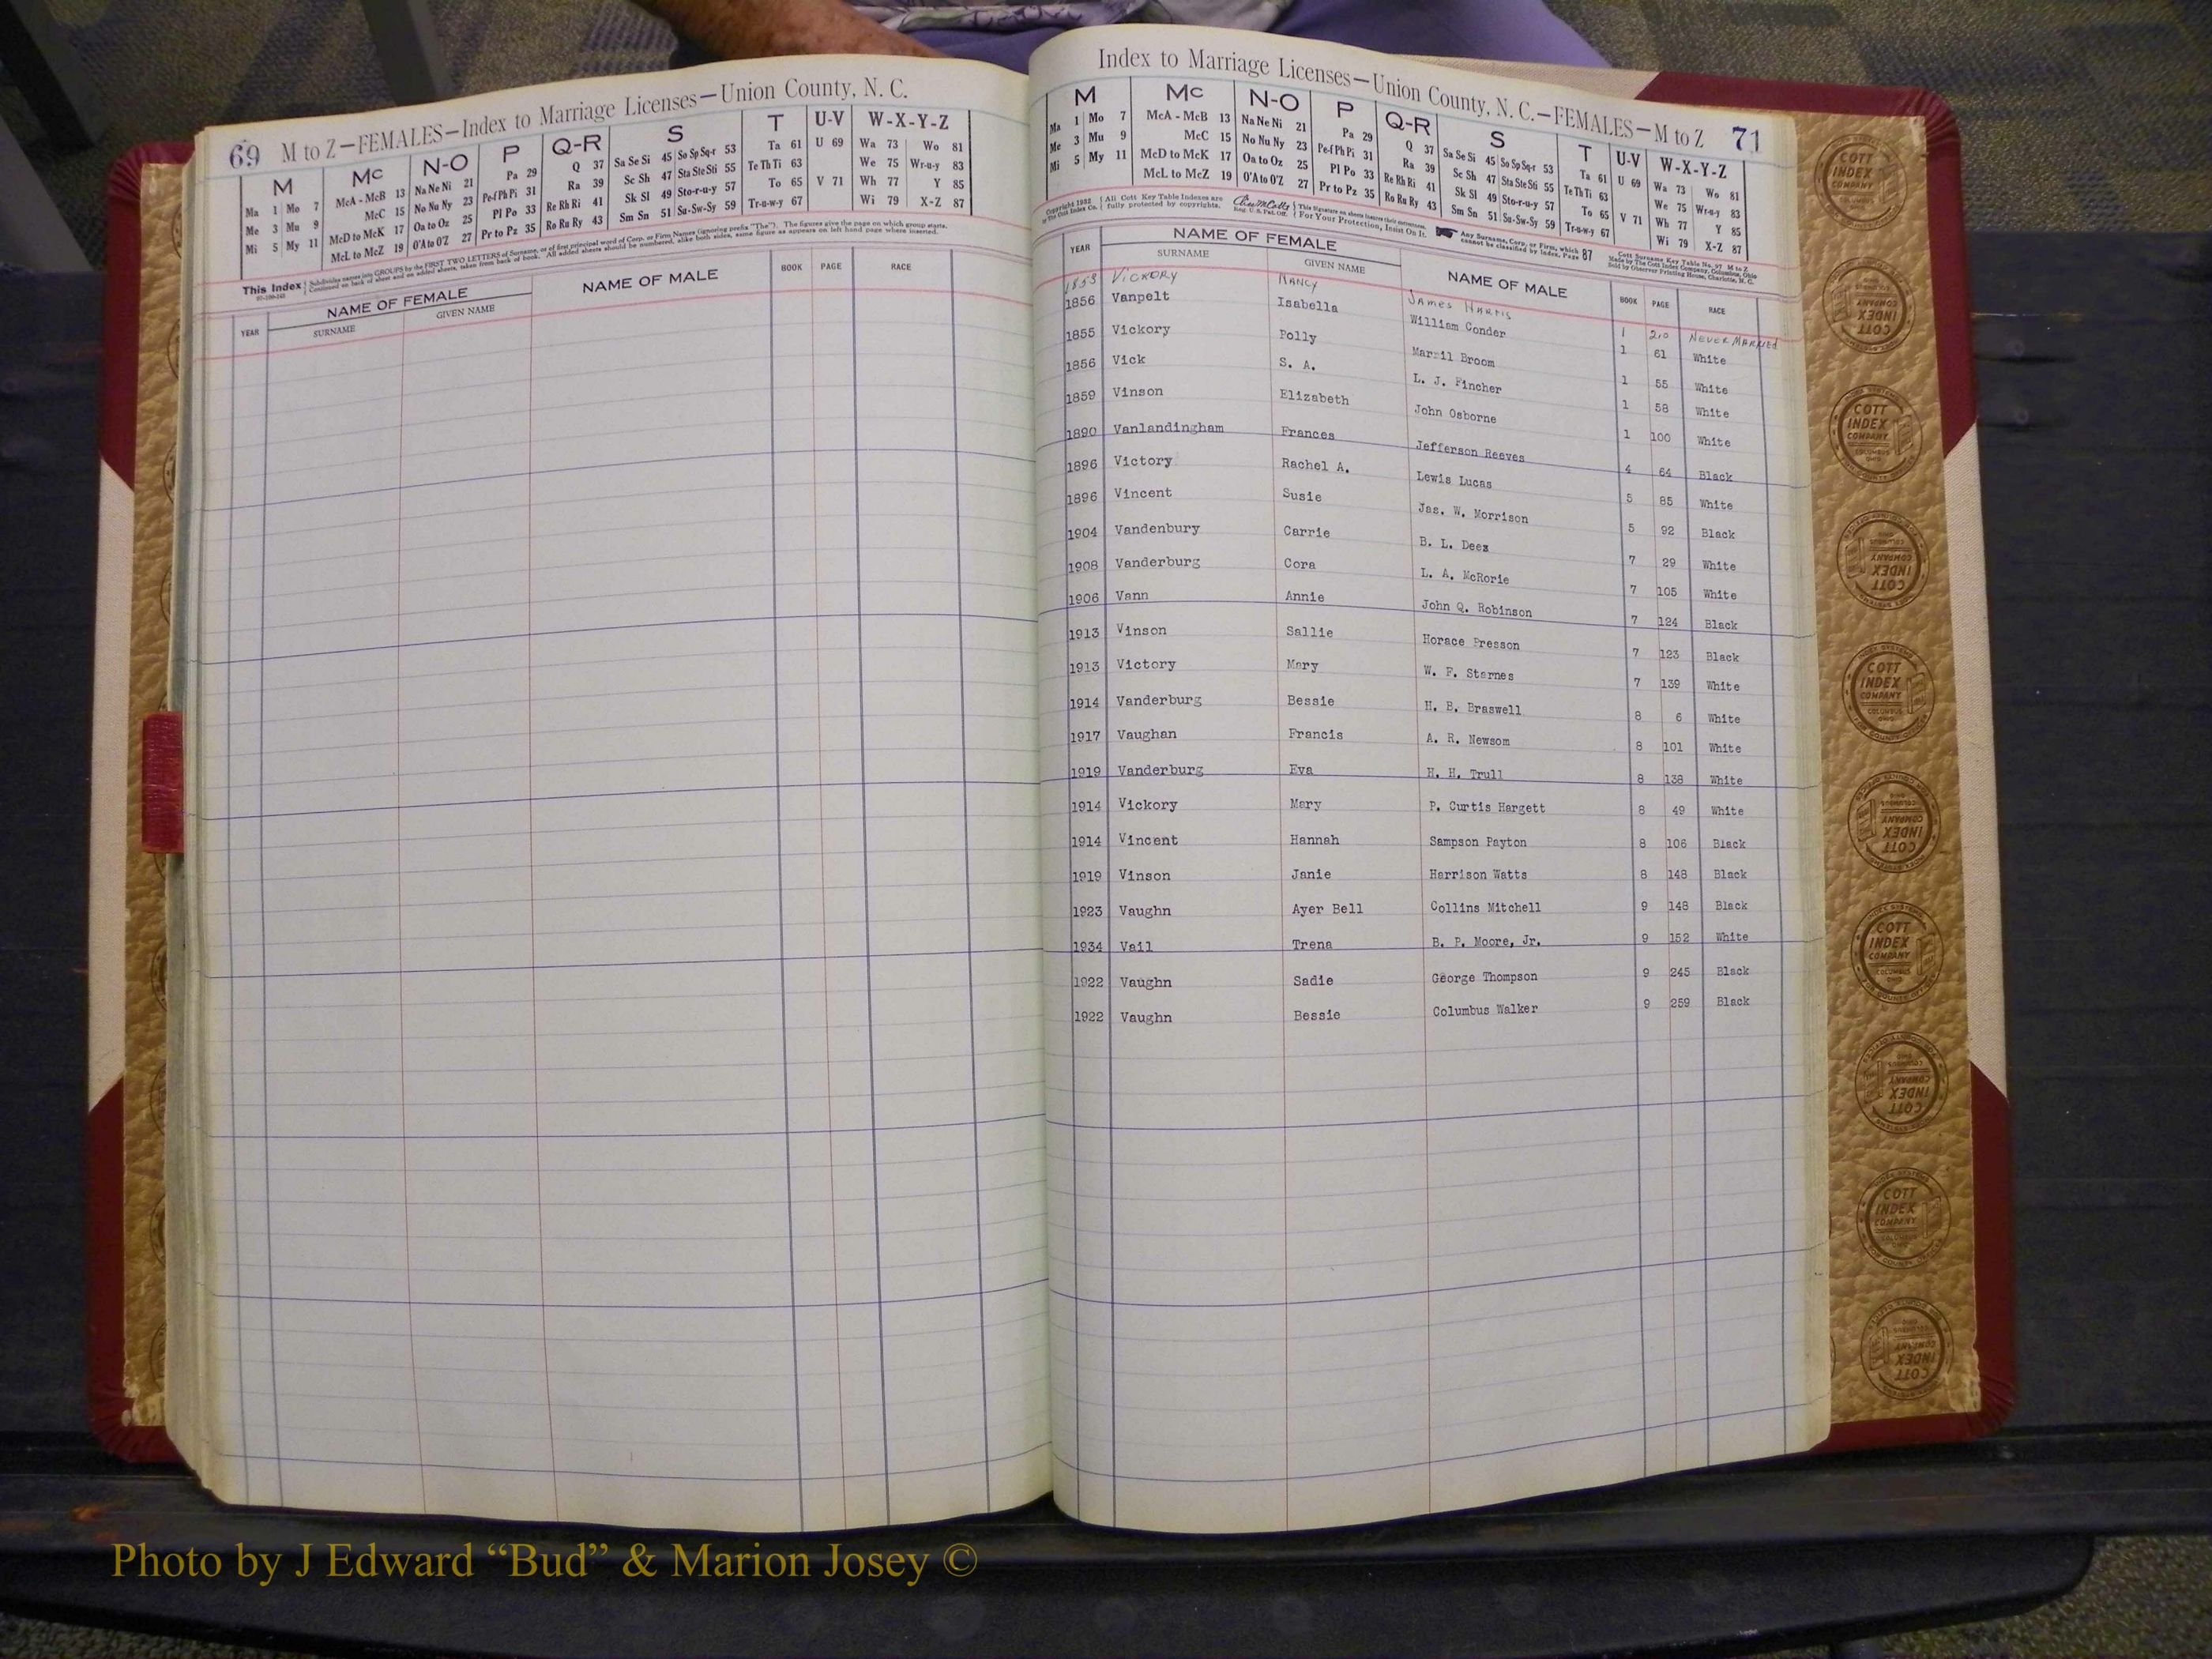 69 M to Z—FEMALES—Index to Marriage Licenses—Union County, N. C.
M Mc N-O P Q-R S T U-V W-X-Y-Z
Ma 1 Mo 7 McA - McB 13 Na Ne Ni 21 Pa 29 Q 37 Sa Se Si 45 So Sp Sq-r 53 Ta 61 U 69 Wa 73 Wo 81
Me 3 Mu 9 McC 15 No Nu Ny 23 Pe-f Ph Pi 31 Ra 39 Sc Sh 47 Sta Ste Sti 55 Te Th Ti 63 We 75 Wr-u-y 83
Mi 5 My 11 McD to McK 17 Oa to Oz 25 Pl Po 33 Re Rh Ri 41 Sk Sl 49 Sto-r-u-y 57 To 65 V 71 Wh 77 Y 85
McL to McZ 19 O'A to O'Z 27 Pr to Pz 35 Ro Ru Ry 43 Sm Sn 51 Su-Sw-Sy 59 Tr-u-w-y 67 Wi 79 X-Z 87
This Index { Subdivides names into GROUPS by the FIRST TWO LETTERS of Surname, or of first principal word of Corp. or Firm Names (ignoring prefix "The"). The figures give the page on which group starts.
Continued on back of sheet and on added sheets, taken from back of book. All added sheets should be numbered, alike both sides, same figure as appears on left hand page where inserted.
YEAR NAME OF FEMALE NAME OF MALE BOOK PAGE RACE
SURNAME GIVEN NAME
Index to Marriage Licenses—Union County, N. C.—FEMALES—M to Z 71
M Mc N-O P Q-R S T U-V W-X-Y-Z
Ma 1 Mo 7 McA - McB 13 Na Ne Ni 21 Pa 29 Q 37 Sa Se Si 45 So Sp Sq-r 53 Ta 61 U 69 Wa 73 Wo 81
Me 3 Mu 9 McC 15 No Nu Ny 23 Pe-f Ph Pi 31 Ra 39 Sc Sh 47 Sta Ste Sti 55 Te Th Ti 63 We 75 Wr-u-y 83
Mi 5 My 11 McD to McK 17 Oa to Oz 25 Pl Po 33 Re Rh Ri 41 Sk Sl 49 Sto-r-u-y 57 To 65 V 71 Wh 77 Y 85
McL to McZ 19 O'A to O'Z 27 Pr to Pz 35 Ro Ru Ry 43 Sm Sn 51 Su-Sw-Sy 59 Tr-u-w-y 67 Wi 79 X-Z 87
All Cott Key Table Indexes are fully protected by copyrights.
For Your Protection, Insist On It.
Any Surname, Corp. or Firm, which cannot be classified by Index, Page 87
YEAR NAME OF FEMALE NAME OF MALE BOOK PAGE RACE
SURNAME GIVEN NAME
1853 VICKORY NANCY JAMES HARRIS 1 20 NEVER MARRIED
1856 Vanpelt Isabella William Conder 1 61 White
1855 Vickory Polly Marzil Broom 1 55 White
1856 Vick S. A. L. J. Fincher 1 58 White
1859 Vinson Elizabeth John Osborne 1 100 White
1890 Vanlandingham Frances Jefferson Reeves 4 64 Black
1896 Victory Rachel A. Lewis Lucas 5 85 White
1896 Vincent Susie Jas. W. Morrison 5 92 Black
1904 Vandenbury Carrie B. L. Dees 7 29 White
1908 Vanderburg Cora L. A. McRorie 7 105 White
1906 Vann Annie John Q. Robinson 7 124 Black
1913 Vinson Sallie Horace Presson 7 123 Black
1913 Victory Mary W. F. Starnes 7 139 White
1914 Vanderburg Bessie H. B. Braswell 8 6 White
1917 Vaughan Francis A. R. Newsom 8 101 White
1919 Vanderburg Eva H. H. Trull 8 138 White
1914 Vickory Mary P. Curtis Hargett 8 49 White
1914 Vincent Hannah Sampson Payton 8 106 Black
1919 Vinson Janie Harrison Watts 8 148 Black
1923 Vaughn Ayer Bell Collins Mitchell 9 148 Black
1934 Vail Trena B. P. Moore, Jr. 9 152 White
1922 Vaughn Sadie George Thompson 9 245 Black
1922 Vaughn Bessie Columbus Walker 9 259 Black
COTT INDEX COMPANY COLUMBUS OHIO
Photo by J Edward “Bud” & Marion Josey ©